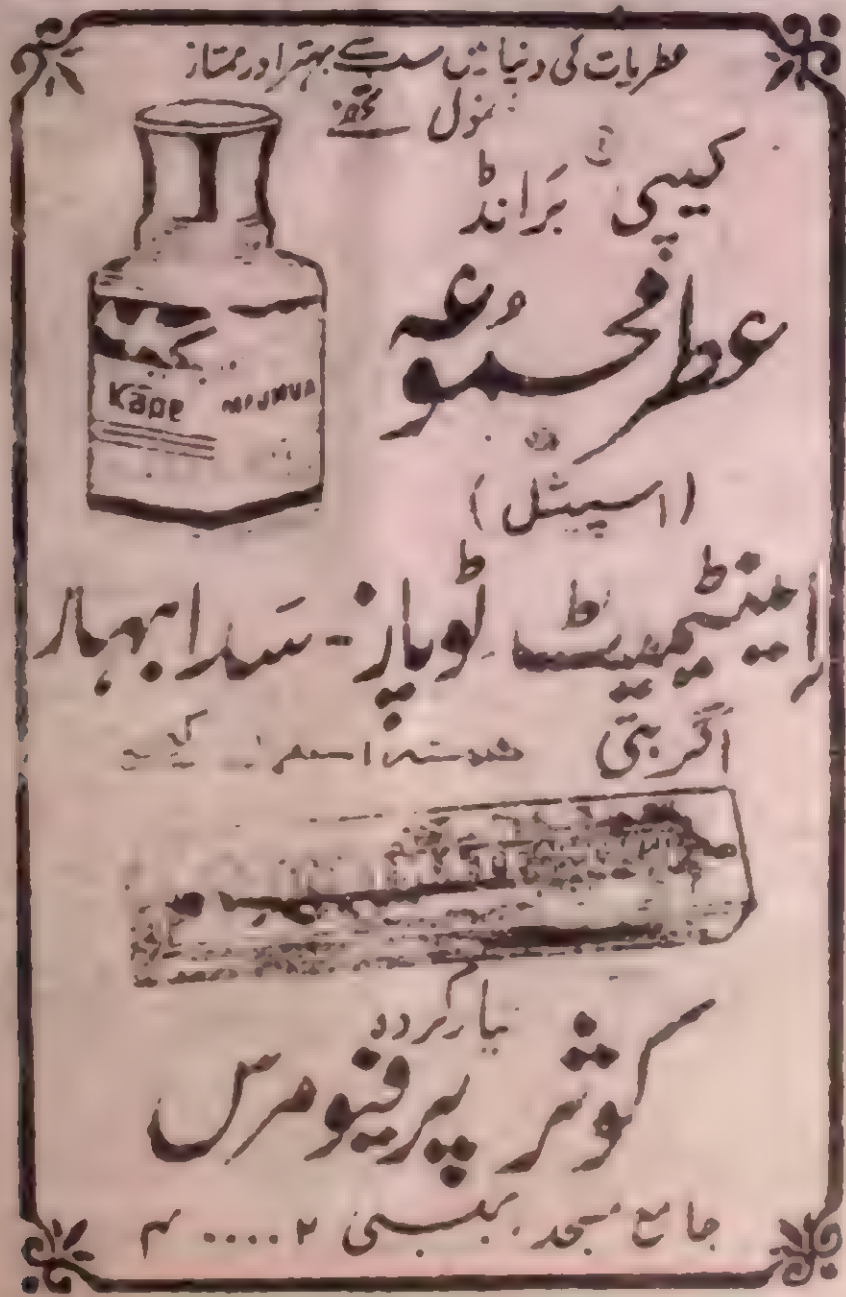 عطریات کی دنیا میں سب سے بہتر اور ممتاز
کیپی برانڈ
عطر مجموعہ
(اسپیشل)
Kāpe MAJMUA
اینٹیمیٹ ٹوپاز - سدا بہار
اگر بتی
تیار کردہ
کوثر پرفیومرس
جامع مسجد، بمبئی ۴۰۰۰۰۲